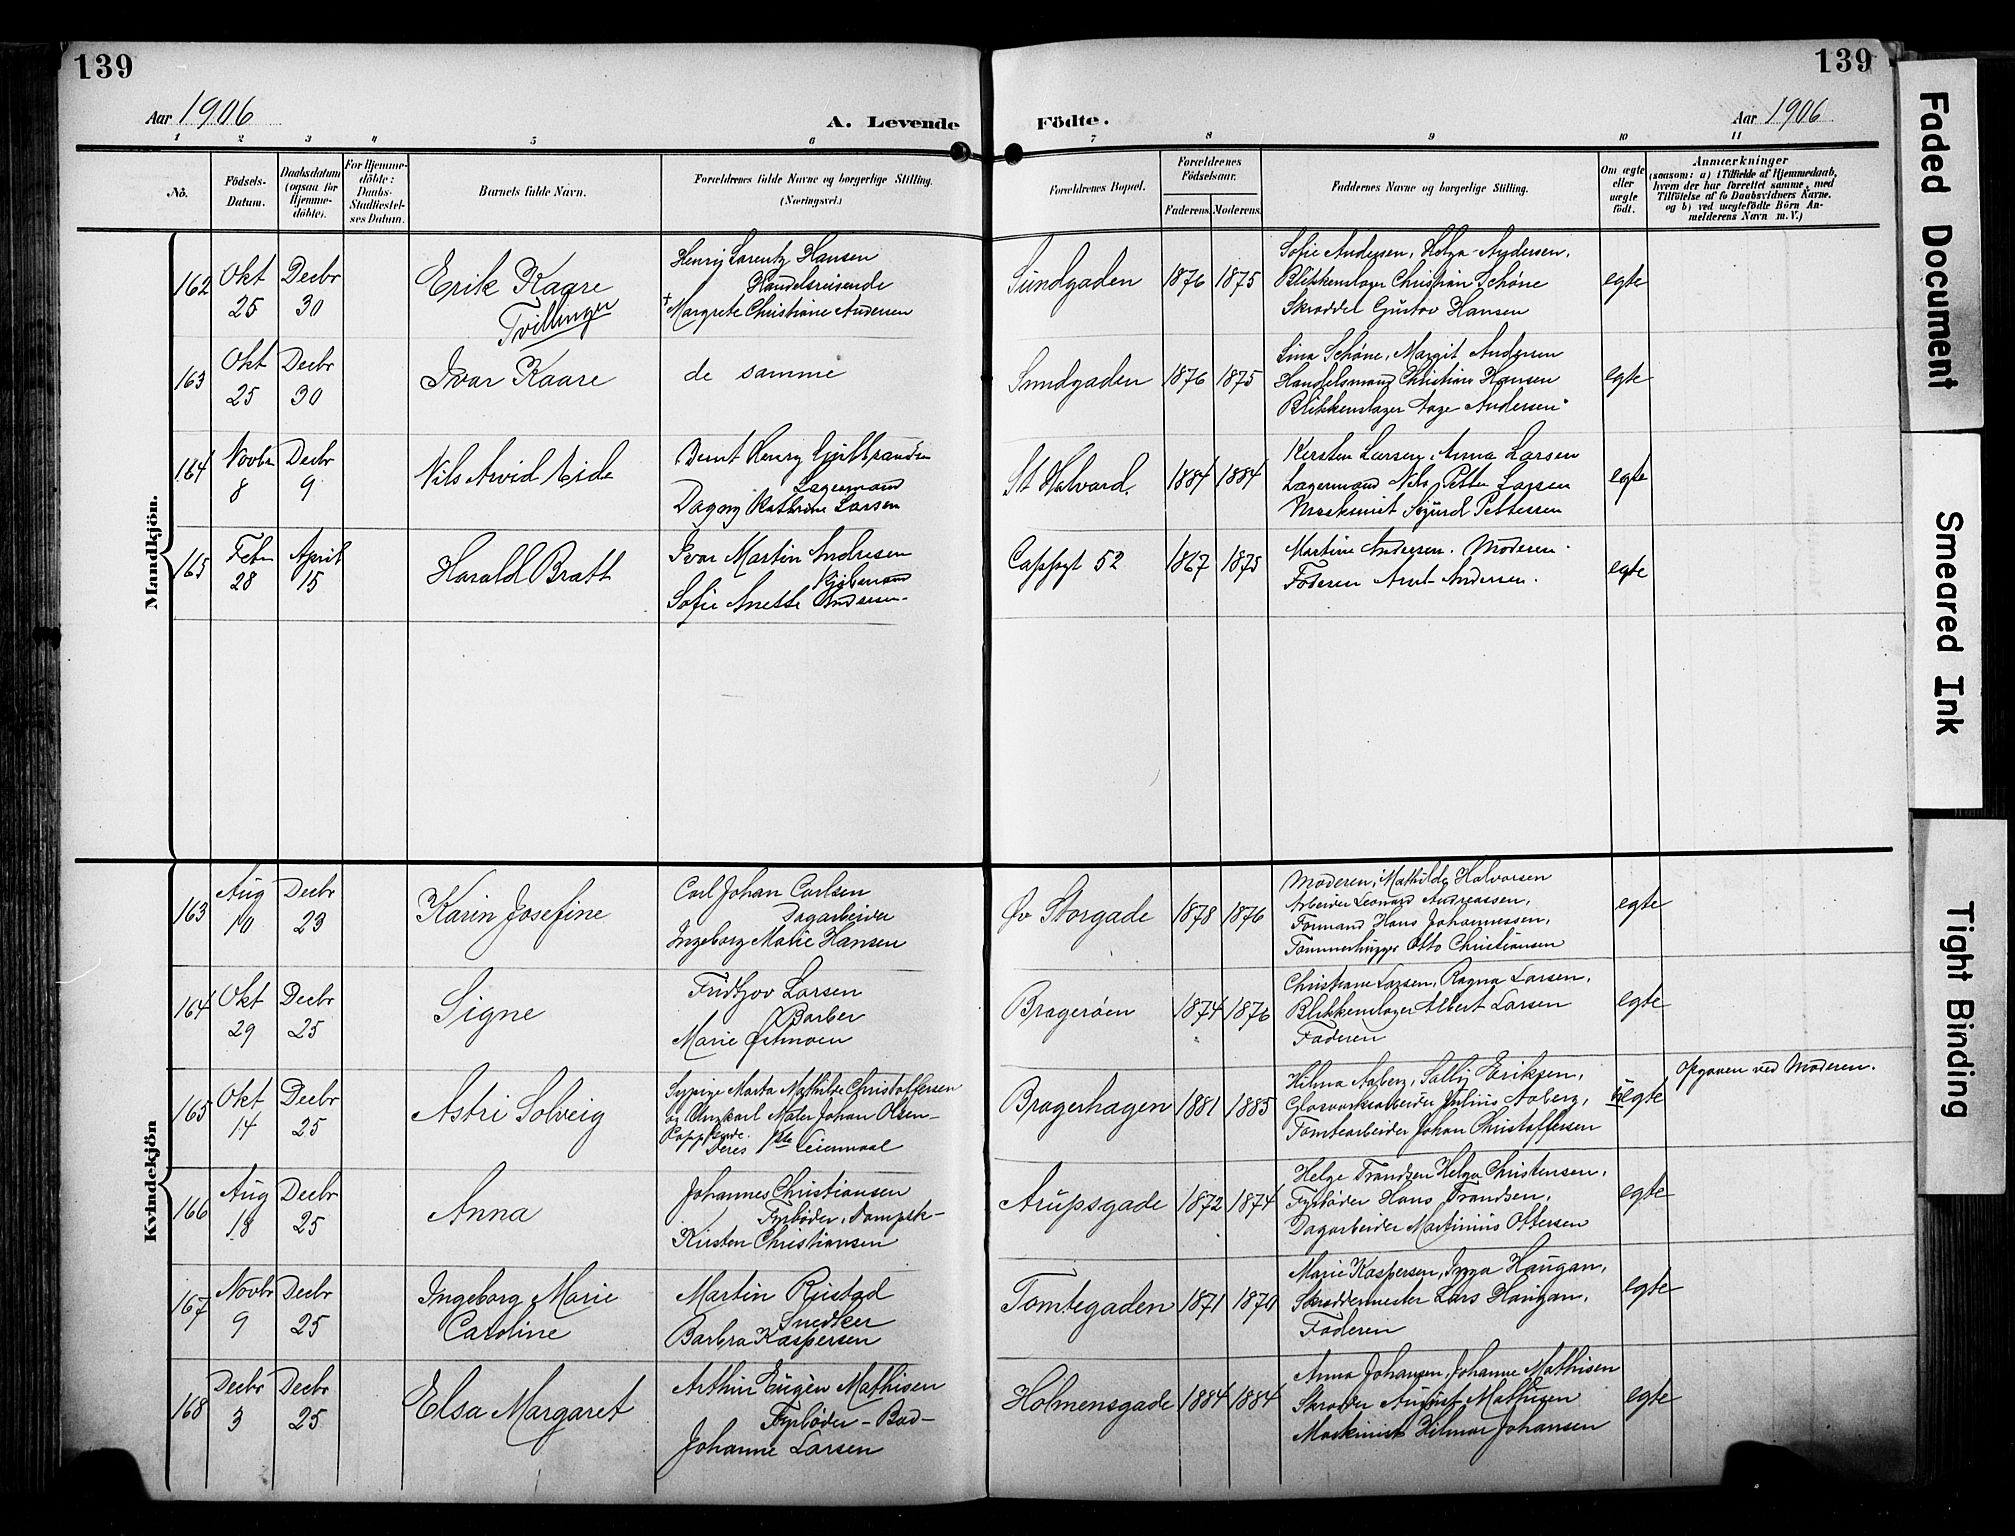 139
139
Aar 1906
A. Levende
Födte.
Aar 1906
1 2 3 4 5 6 7 8 9 10 11
No.
Födsels-Datum.
Daabsdatum (ogsaa for Hjemme-döbte).
For Hjemme-döbte: Daabs-Stadfæstel-ses Datum.
Barnets fulde Navn.
Forældrenes fulde Navne og borgerlige Stilling. (Næringsvei.)
Forældrenes Bopæl.
Forældrenes Födselsaar.
Faderens. Moderens.
Faddernes Navne og borgerlige Stilling.
Om ægte eller uægte født.
Anmærkninger
(saasom: a) i Tilfælde af Hjemmedaab,
hvem der har forrettet samme, med
Tilföielse af to Daabsvidners Navne.
og b) ved uægtefödte Börn An-
melderens Navn m. V.)
Mandkjön.
162 Okt 25 Decbr 30
Erik Kaare
Tvillinger
Henry Lorentz Hansen
Handelsreisende
+ Margrete Christiane Andersen
Sundgaden 1876 1875
Sofie Andersen, Helga Andersen,
Blikkenslager Christian Schöne
Skrædder Gustav Hansen
egte
163 Okt 25 Decbr 30
Ivar Kaare
de samme
Sundgaden 1876 1875
Lina Schöne, Margit Andersen
Handelsmand Christian Hansen
Blikkenslager Aage Andersen
egte
164 Novbr 8 Decbr 9
Nils Arvid Eide
Bernt Henry Gulbrandsen
Lagermand
Dagny Kathrine Larsen
St Halvard. 1884 1884
Kirsten Larsen, Anna Larsen
Lagermand Nils Petter Larsen
Maskinist Sigurd Pettersen
egte
165 Febr 28 April 15
Harald Bratt
Ivar Martin Andresen
Kjöbmand
Sofie Anette Andersen
Cappgt 52 1867 1875
Martine Andersen. Moderen.
Faderen Arnt Andersen.
egte
Kvindekjön
163 Aug 10 Decbr 23
Karin Josefine
Carl Johan Carlsen
Dagarbeider
Ingeborg Marie Hansen
Øv Storgade 1878 1876
Moderen, Mathilde Halvorsen
Arbeider Leonard Andreassen,
Formand Hans Johannessen,
Tømmerhugger Otto Christiansen
egte
164 Okt 29 Decbr 25
Signe
Fridtjov Larsen
Barber
Marie Østmoen
Bragerøen 1874 1876
Christiane Larsen, Ragna Larsen,
Blikkenslager Albert Larsen
Faderen
egte
165 Okt 14 Decbr 25
Astri Solveig
Sypige Marta Mathilde Christoffersen
og Ungkarl Maler Johan Olsen
Deres 1ste Leiermaal
Bragerhagen 1881 1885
Hilma Aaberg, Sally Eriksen,
Glasværksarbeider Julius Aaberg,
Tomtearbeider Johan Christoffersen
uegte
Opgaven ved Moderen.
166 Aug 18 Decbr 25
Anna
Johannes Christiansen
Fyrbøder, Dampsk-
Kirsten Christiansen
Arupsgade 1872 1874
Helge Trandsen Helga Christensen,
Fyrbøder Hans Trandsen,
Dagarbeider Martinius Ottersen
egte
167 Novbr 9 Decbr 25
Ingeborg Marie
Caroline
Martin Rustad
Snedker
Barbra Kaspersen
Tomtegaden 1871 1870
Marie Kaspersen, Inga Haugan,
Skræddermester Lars Haugan,
Faderen
egte
168 Decbr 3 Decbr 25
Elsa Margaret
Arthur Eugèn Mathisen
Fyrbøder - Bad-
Johanne Larsen
Holmensgade 1884 1884
Anna Johansen, Johanne Mathisen
Skrædder August Mathisen
Maskinist Hilmar Johansen
egte
Faded Document
Smeared Ink
Tight Binding